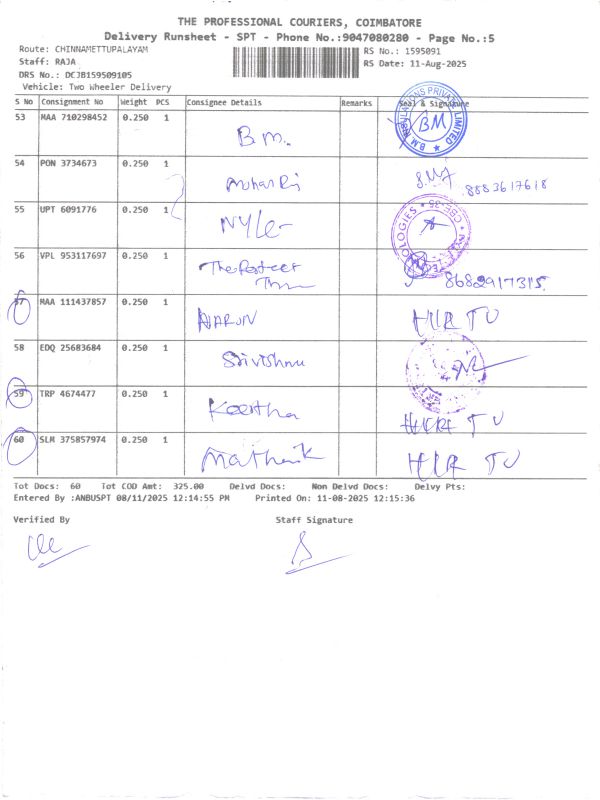 THE PROFESSIONAL COURIERS, COIMBATORE
Delivery Runsheet - SPT - Phone No.:9047080280 - Page No.:5
Route: CHINNAMETTUPALAYAM
RS No.: 1595091
Staff: RAJA
RS Date: 11-Aug-2025
DRS No.: DCJB159509105
Vehicle: Two Wheeler Delivery
S No Consignment No Weight PCS Consignee Details Remarks Seal & Signature
53 MAA 710298452 0.250 1 B.M. BM
54 PON 3734673 0.250 1 8883617618
55 UPT 6091776 0.250 1 NYLe
56 VPL 953117697 0.250 1 The Perfect 8682917315
57 MAA 111437857 0.250 1 ARUN
58 EDQ 25683684 0.250 1 Srivishnu
59 TRP 4674477 0.250 1 Keertha
60 SLM 375857974 0.250 1
Tot Docs: 60 Tot COD Amt: 325.00 Delvd Docs: Non Delvd Docs: Delvy Pts:
Entered By :ANBUSPT 08/11/2025 12:14:55 PM Printed On: 11-08-2025 12:15:36
Verified By Staff Signature